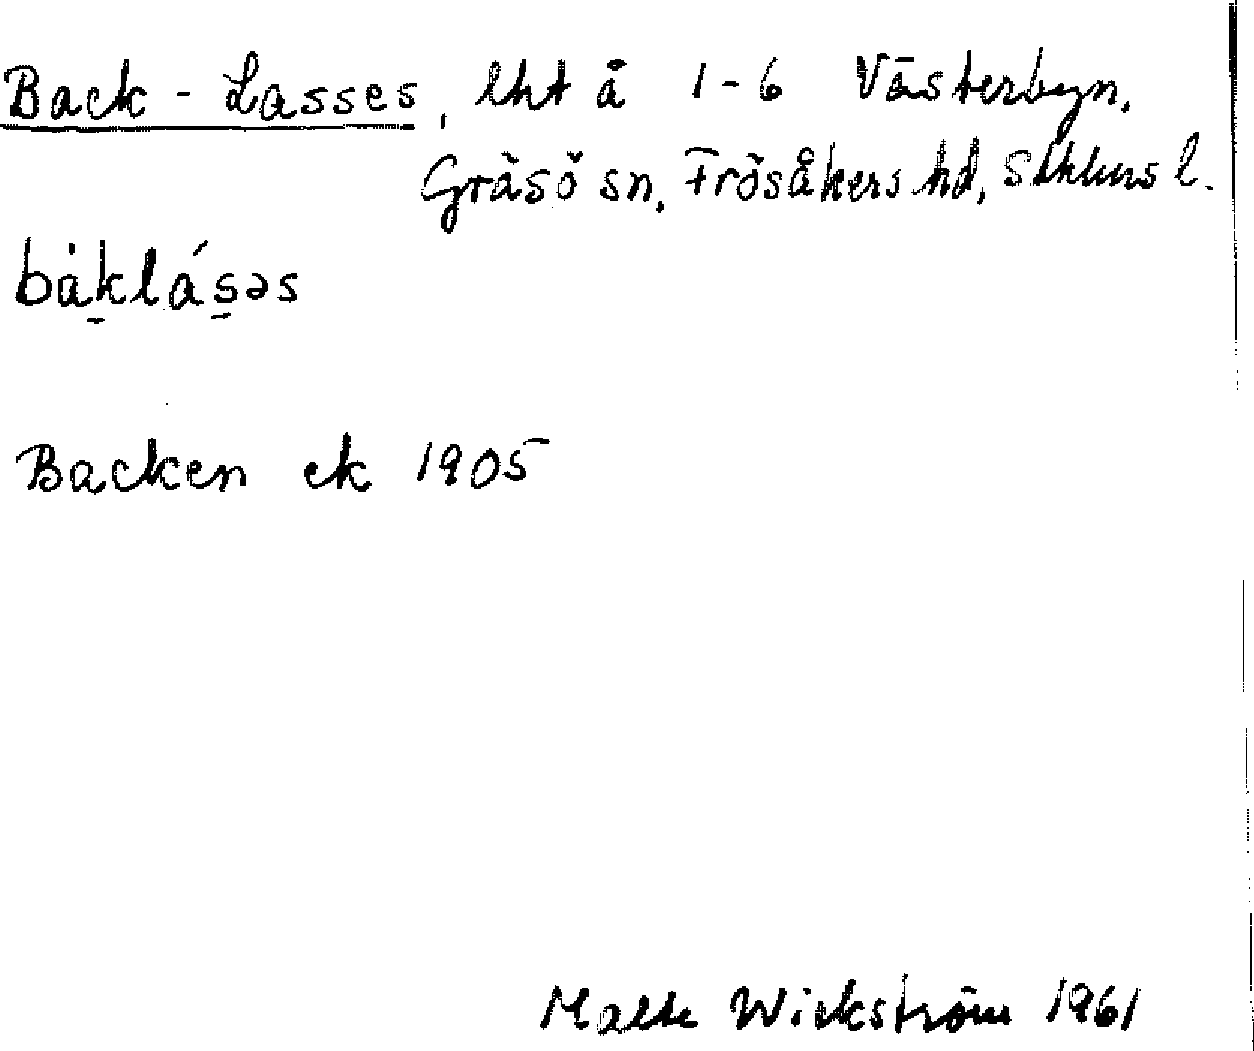 Back-Lasses, lht å 1-6 Västerbyn,
Gräsö sn, Frösåkers hd, Sthlms l.
bàk̠lás̠əs
Backen ek 1905
Malte Wickström 1961